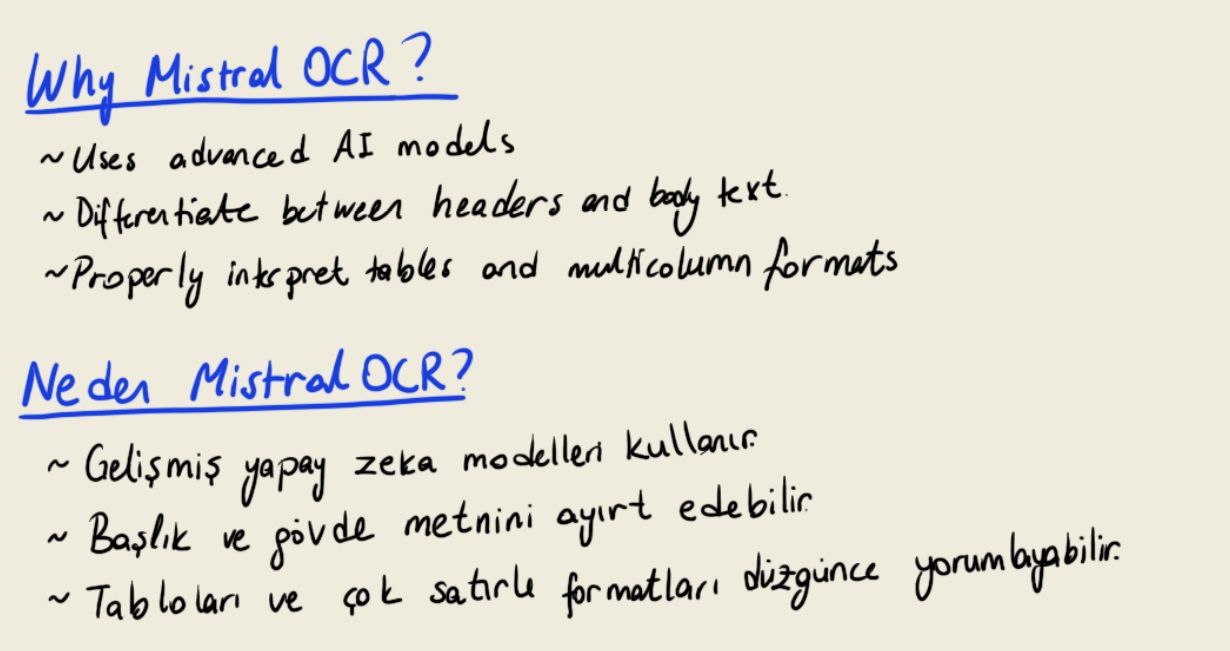 Why Mistral OCR?
~ Uses advanced AI models
~ Differentiate between headers and body text.
~ Properly interpret tables and multicolumn formats
Neden Mistral OCR?
~ Gelişmiş yapay zeka modelleri kullanır.
~ Başlık ve gövde metnini ayırt edebilir.
~ Tabloları ve çok satırlı formatları düzgünce yorumlayabilir.